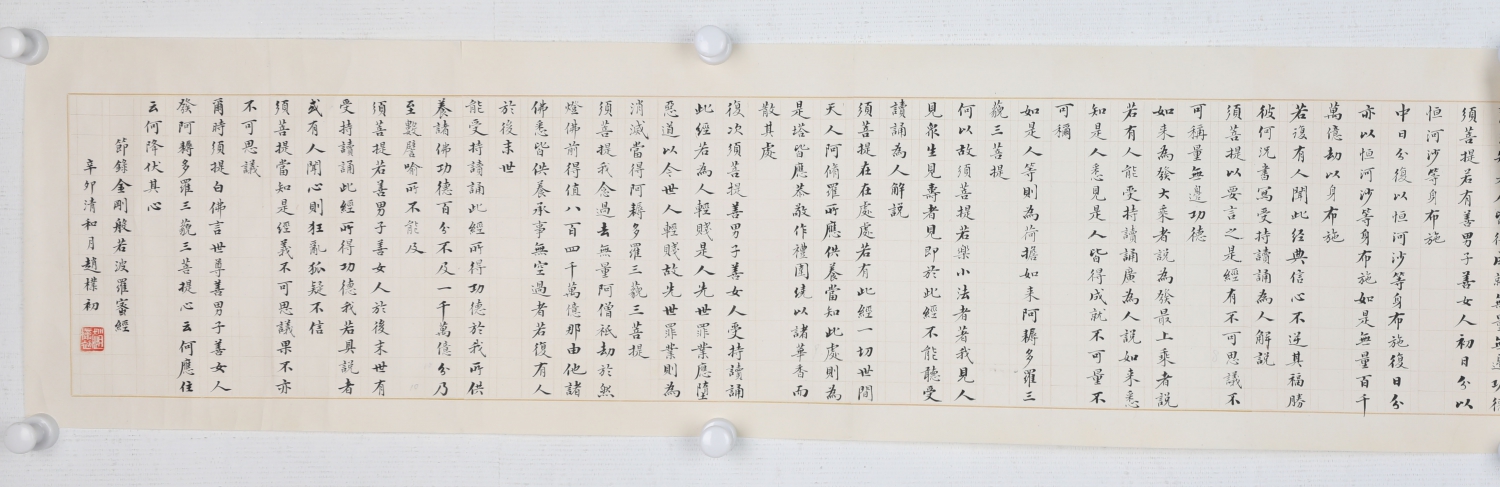 須菩提若有善男子善女人初日分以
恒河沙等身布施
中日分復以恒河沙等身布施復日分
亦以恒河沙等身布施如是無量百千
萬億劫以身布施
若復有人聞此經典信心不逆其福勝
彼何況書寫受持讀誦為人解說
須菩提以要言之是經有不可思議不
可稱量無邊功德
如来為發大乘者說為發最上乘者說
若有人能受持讀誦廣為人說如来悉
知是人悉見是人皆得成就不可量不
可稱
如是人等則為荷擔如来阿耨多羅三
藐三菩提
何以故須菩提若樂小法者著我見人
見眾生見壽者見即於此經不能聽受
讀誦為人解說
須菩提在在處處若有此經一切世間
天人阿脩羅所應供養當知此處則為
是塔皆應恭敬作禮圍繞以諸華香而
散其處
復次須菩提善男子善女人受持讀誦
此經若為人輕賤是人先世罪業應墮
惡道以今世人輕賤故先世罪業則為
消滅當得阿耨多羅三藐三菩提
須菩提我念過去無量阿僧祇劫於然
燈佛前得值八百四千萬億那由他諸
佛悉皆供養承事無空過者若復有人
於後末世
能受持讀誦此經所得功德於我所供
養諸佛功德百分不及一千萬億分乃
至數譬喻所不能及
須菩提若善男子善女人於後末世有
受持讀誦此經所得功德我若具說者
或有人聞心則狂亂狐疑不信
須菩提當知是經義不可思議果不亦
不可思議
爾時須提白佛言世尊善男子善女人
發阿耨多羅三藐三菩提心云何應住
云何降伏其心
節錄金剛般若波羅蜜經
辛卯清和月趙樸初